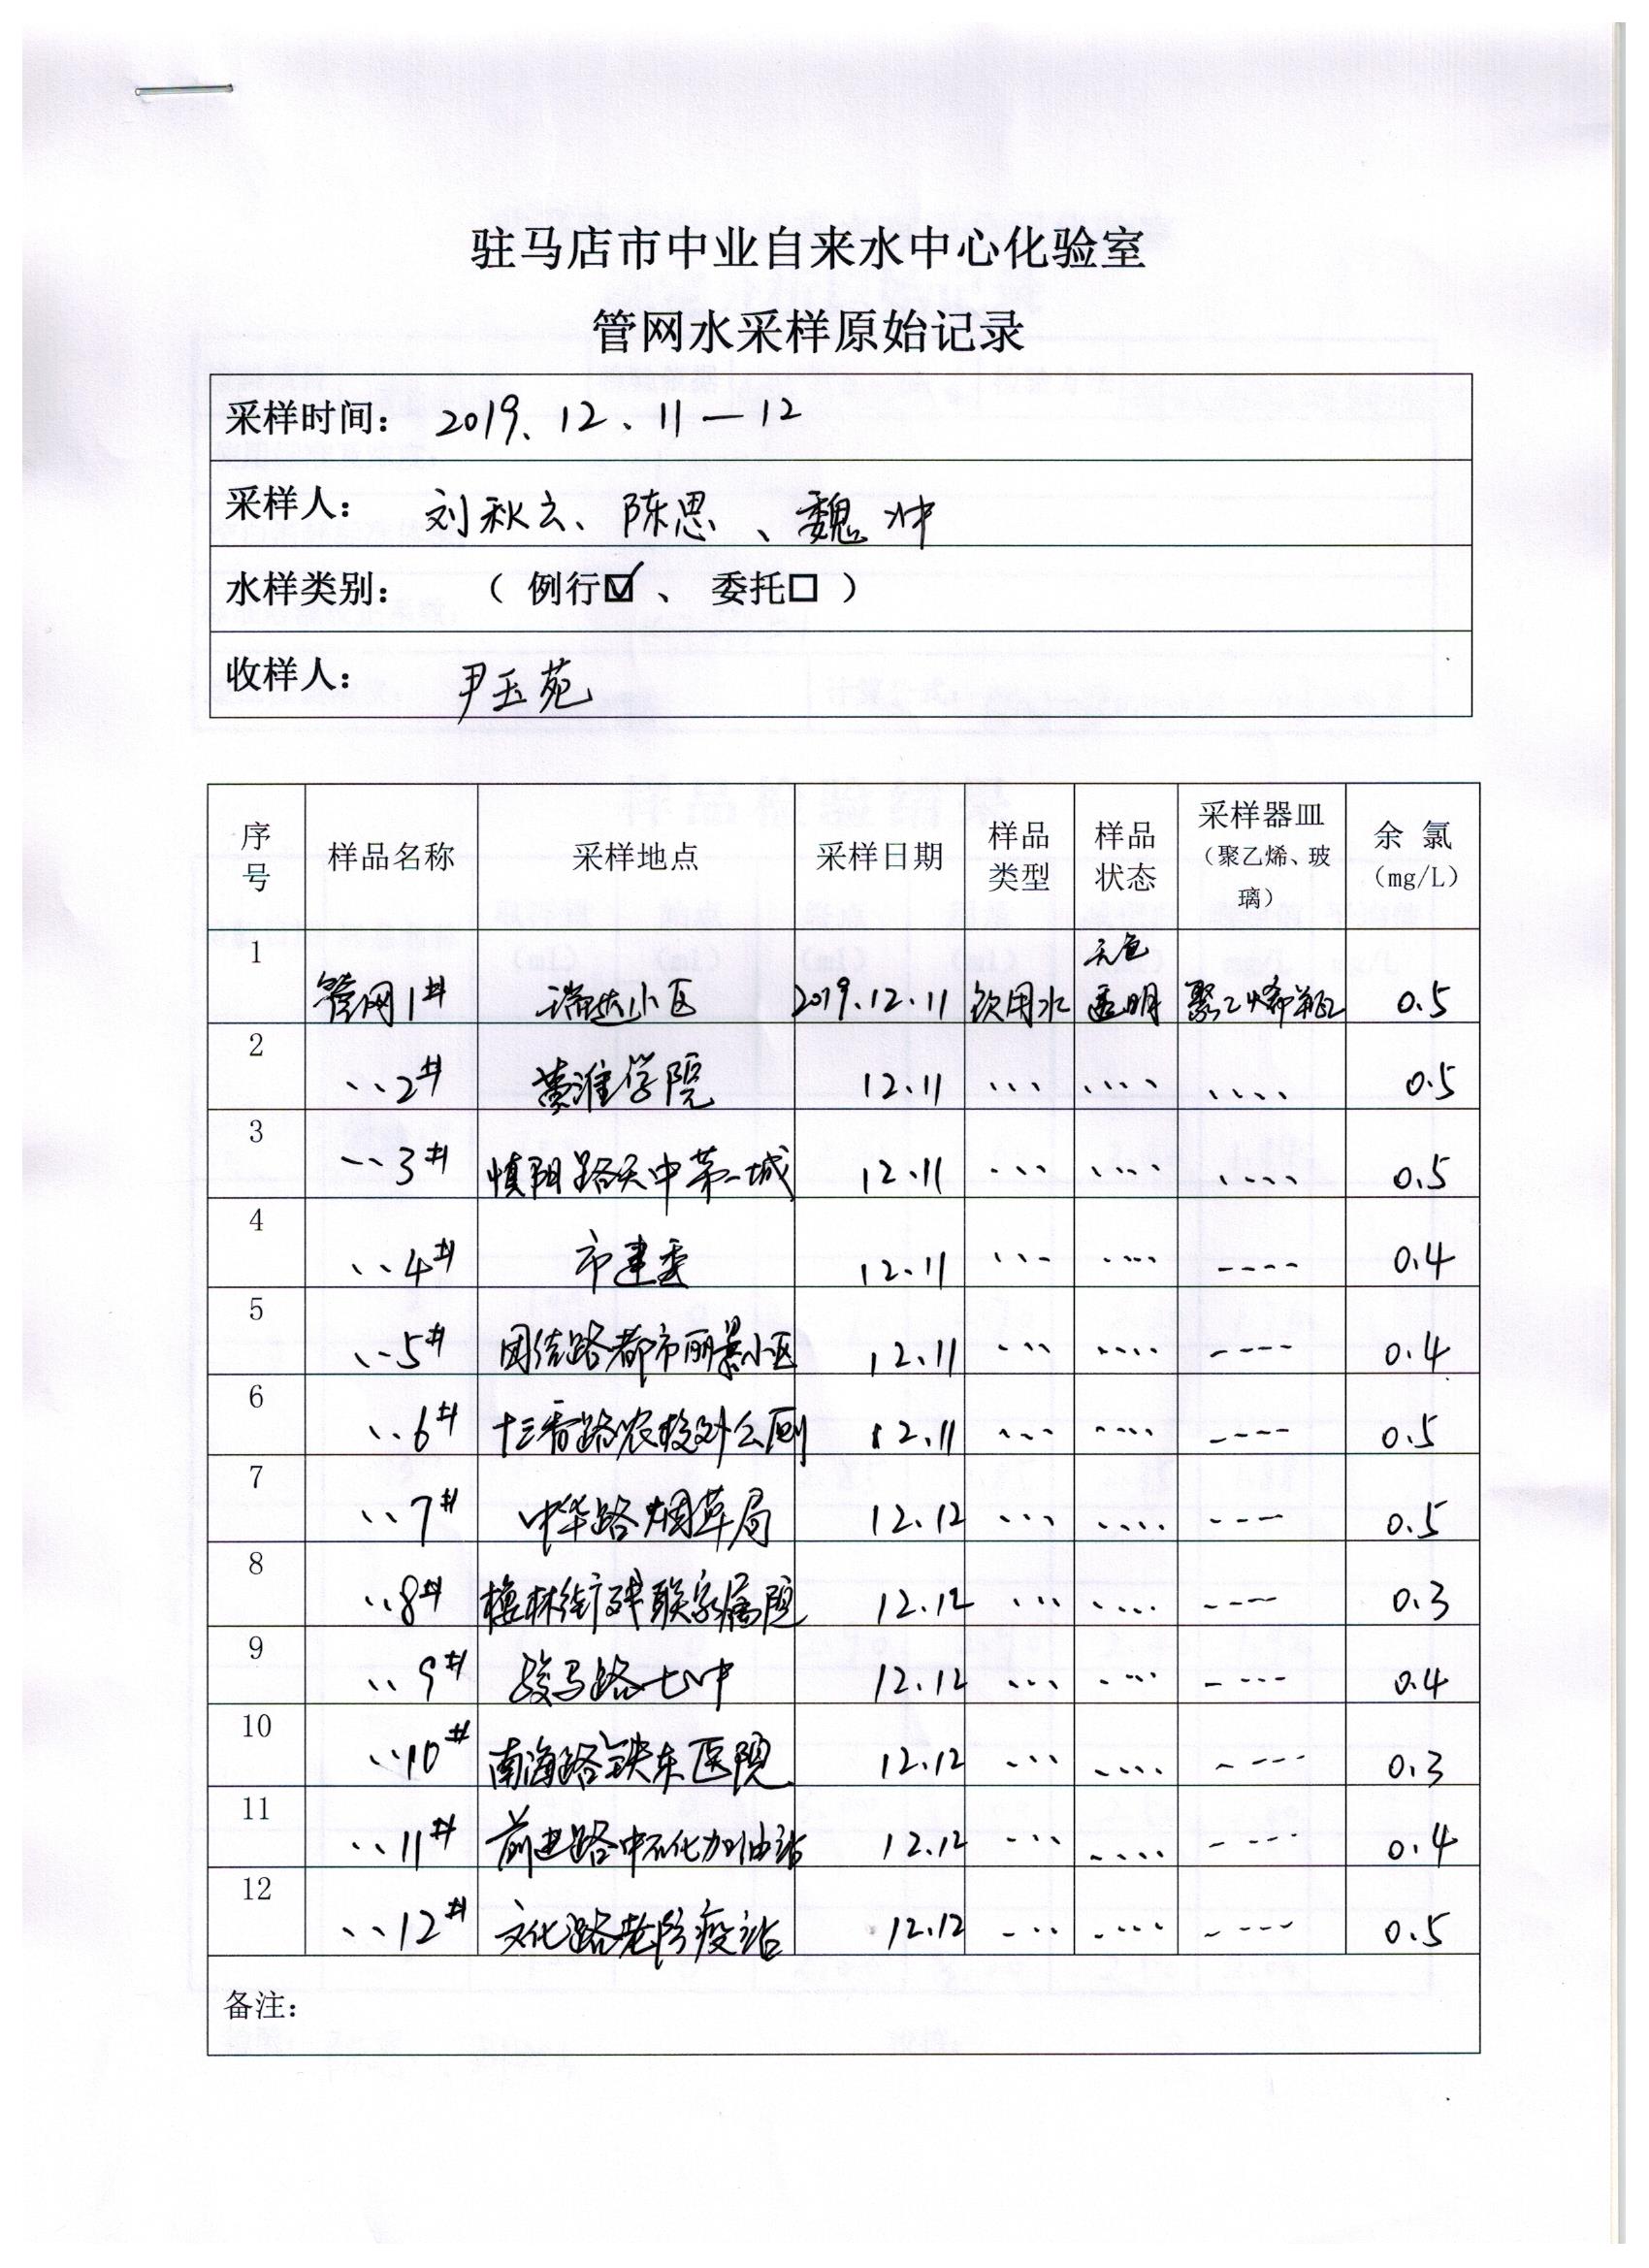 驻马店市中业自来水中心化验室
管网水采样原始记录
采样时间： 2019、12、11—12
采样人： 刘秋云、陈思、魏冲
水样类别： （ 例行☑ 、 委托□ ）
收样人： 尹玉苑
序号 样品名称 采样地点 采样日期 样品类型 样品状态 采样器皿（聚乙烯、玻璃） 余 氯（mg/L）
1 管网1# 瑞达小区 2019.12.11 饮用水 无色透明 聚乙烯瓶 0.5
2 、、2# 黄淮学院 12.11 、、、 、、、、 、、、、 0.5
3 、、3# 慎阳路天中第一城 12.11 、、、 、、、、 、、、、 0.5
4 、、4# 市建委 12.11 、、、 、、、、 ---- 0.4
5 、、5# 团结路都市丽景小区 12.11 、、、 、、、、 ---- 0.4
6 、、6# 十三香路农校外公厕 12.11 、、、 、、、、 ---- 0.5
7 、、7# 中华路烟草局 12.12 、、、 、、、、 ---- 0.5
8 、、8# 梅林街残联家属院 12.12 、、、 、、、、 ---- 0.3
9 、、9# 骏马路七中 12.12 、、、 、、、、 ---- 0.4
10 、、10# 南海路铁东医院 12.12 、、、 、、、、 ---- 0.3
11 、、11# 前进路中石化加油站 12.12 、、、 、、、、 ---- 0.4
12 、、12# 文化路老防疫站 12.12 、、、 、、、、 ---- 0.5
备注：